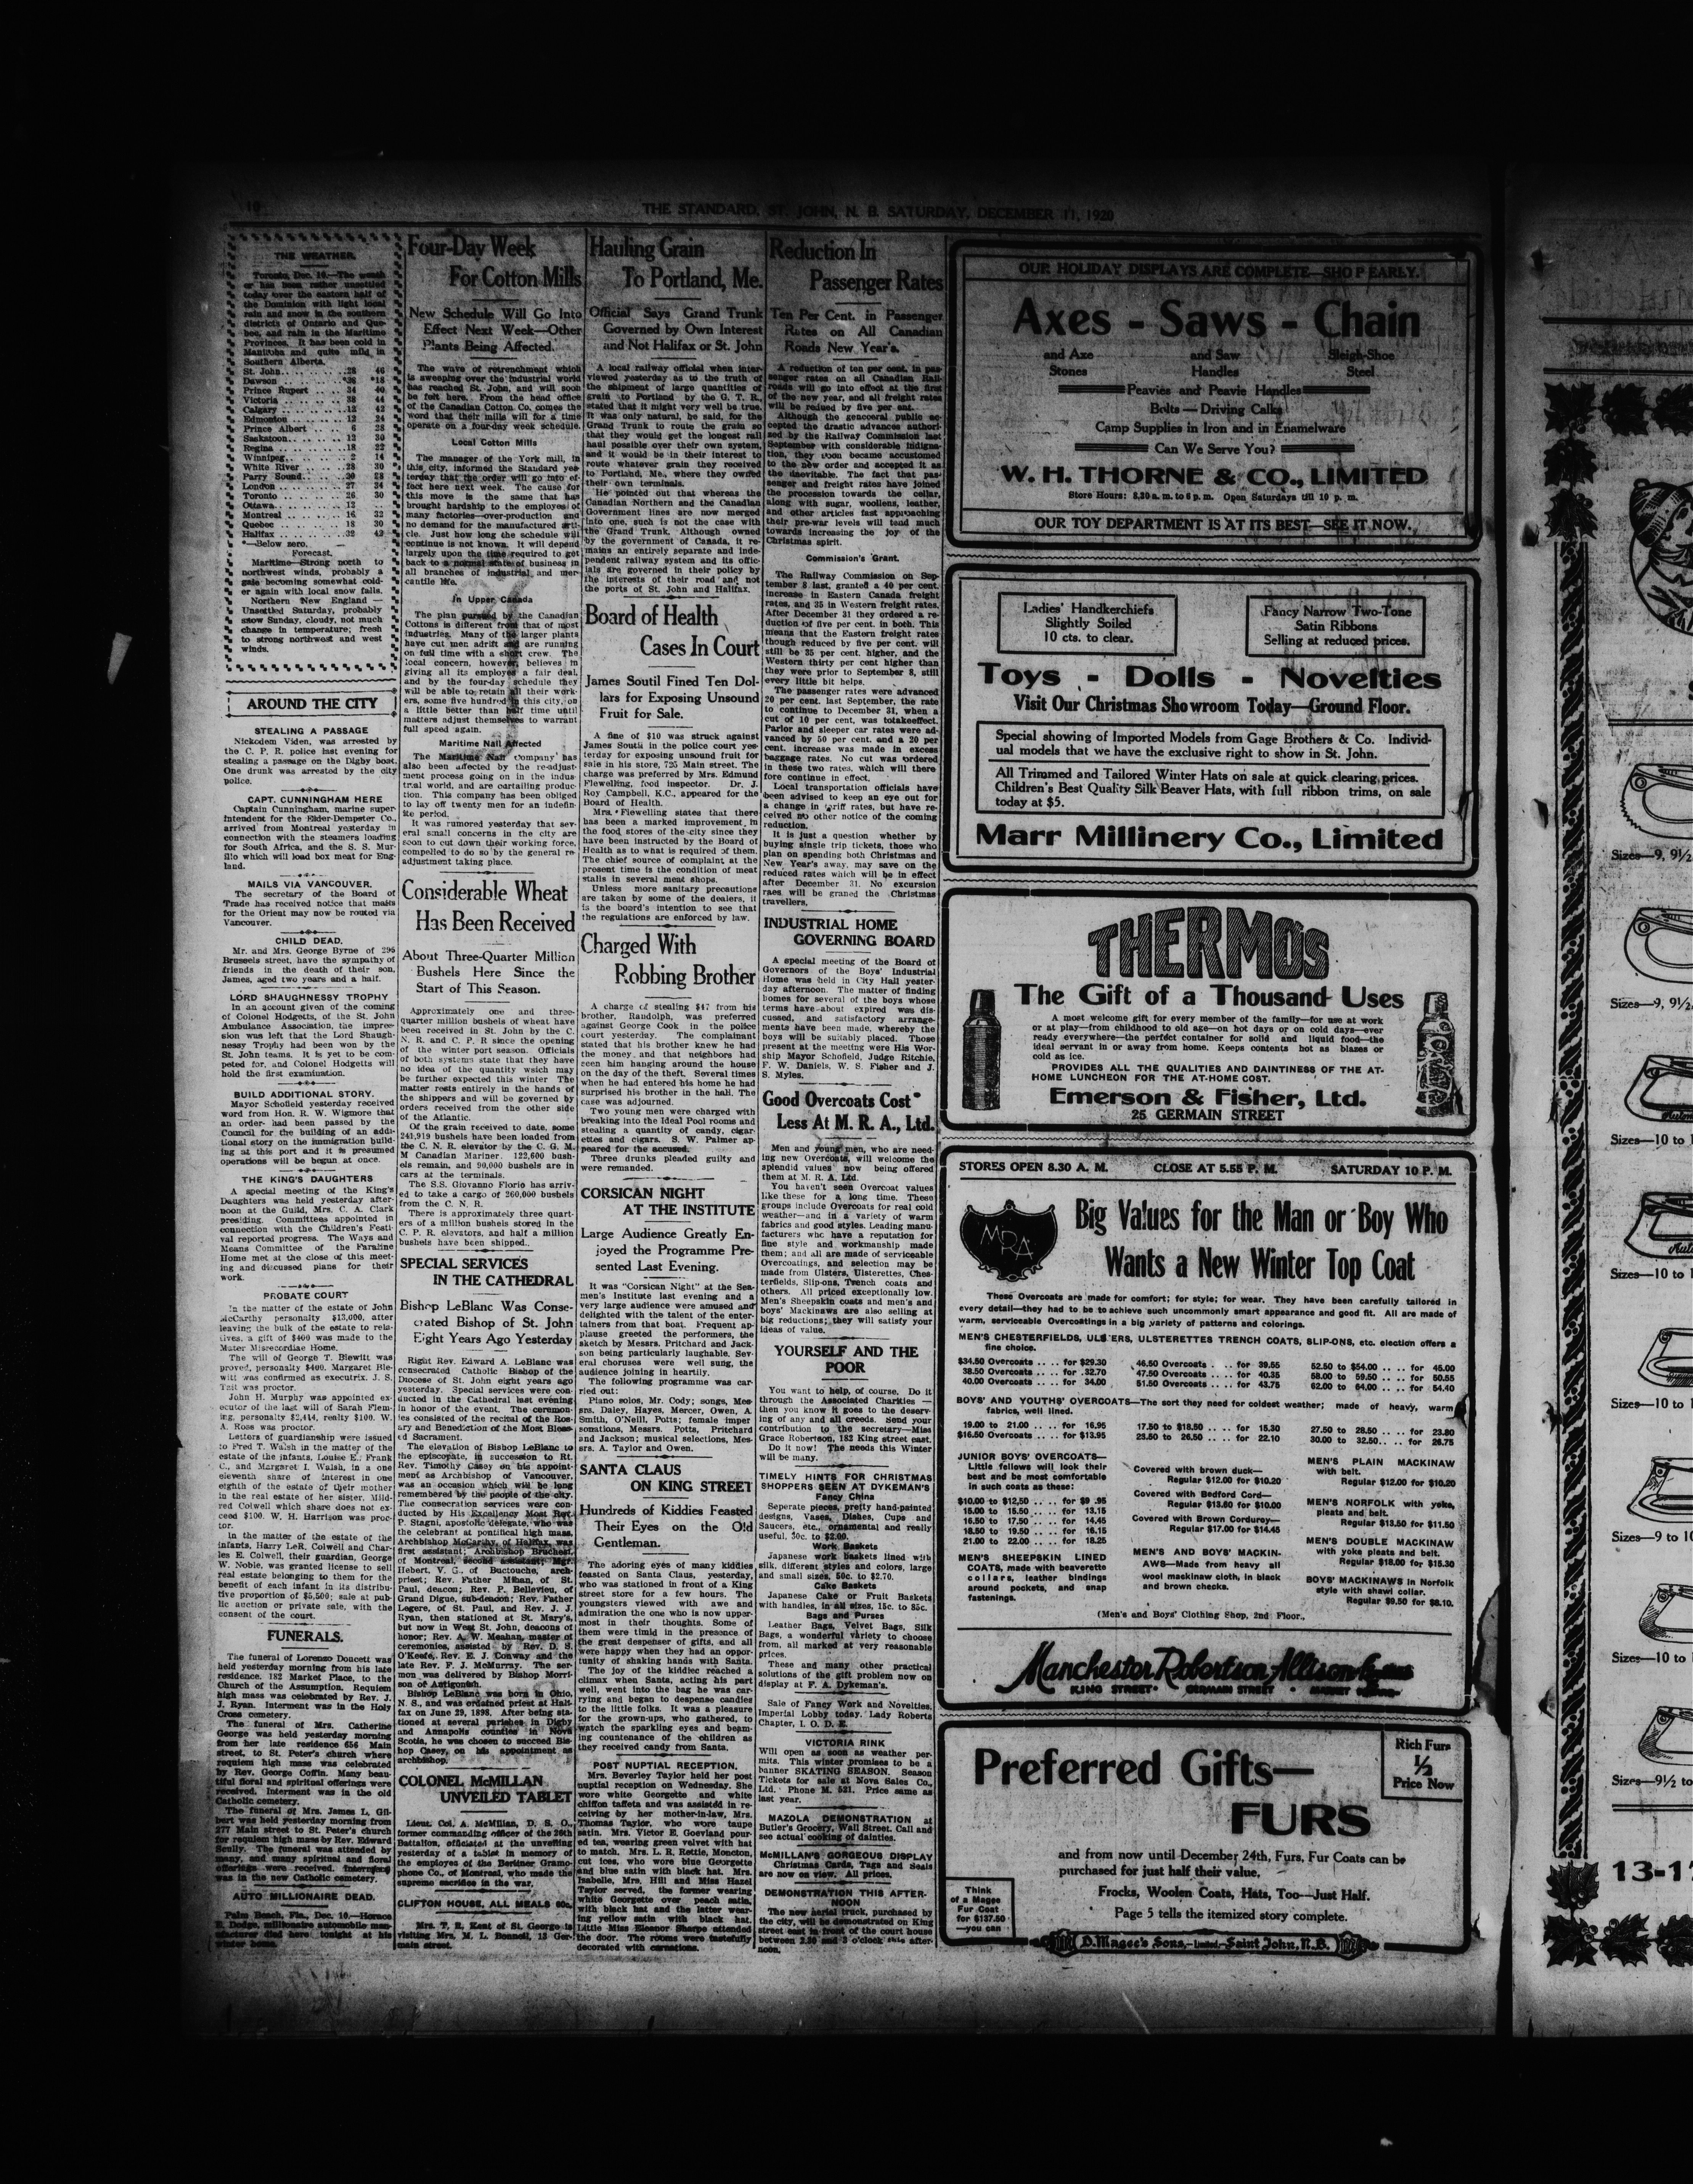 10
THE STANDARD, ST. JOHN, N. B. SATURDAY, DECEMBER 11, 1920
THE WEATHER.
Toronto, Dec. 10.—The weath
er has been rather unsettled
today over the eastern half of
the Dominion with light local
rain and snow in the southern
districts of Ontario and Que-
bec, and rain in the Maritime
Provinces. It has been cold in
Manitoba and quite mild in
Southern Alberta.
St. John.. .. .. .. .. ..28 46
Dawson .. .. .. .. .. ..*38 *18
Prince Rupert .. .. .. 34 40
Victoria .. .. .. .. .. 38 44
Calgary .. .. .. .. .. ..12 42
Edmonton .. .. .. .. ..12 24
Prince Albert .. .. .. 6 28
Saskatoon.. .. .. .. ..12 30
Regina .. .. .. .. .. ..18 22
Winnipeg.. .. .. .. .. 2 14
White River .. .. .. ..28 30
Parry Sound.. .. .. ..20 28
London .. .. .. .. .. ..27 34
Toronto .. .. .. .. .. 26 30
Ottawa.. .. .. .. .. .. 12 ..
Montreal .. .. .. .. .. 16 32
Quebec .. .. .. .. .. 18 30
Halifax .. .. .. .. .. ..32 42
*—Below zero.
Forecast.
Maritime—Strong north to
northwest winds, probably a
gale becoming somewhat cold-
er again with local snow falls.
Northern New England —
Unsettled Saturday, probably
snow Sunday, cloudy, not much
change in temperature; fresh
to strong northwest and west
winds.
AROUND THE CITY
STEALING A PASSAGE
Nickodem Viden, was arrested by
the C. P. R. police last evening for
stealing a passage on the Digby boat.
One drunk was arrested by the city
police.
CAPT. CUNNINGHAM HERE
Captain Cunningham, marine super-
intendent for the Elder-Dempster Co.,
arrived from Montreal yesterday in
connection with the steamers loading
for South Africa, and the S. S. Mur-
illo which will load box meat for Eng-
land.
MAILS VIA VANCOUVER.
The secretary of the Board of
Trade has received notice that mails
for the Orient may now be routed via
Vancouver.
CHILD DEAD.
Mr. and Mrs. George Byrne of 295
Brussels street, have the sympathy of
friends in the death of their son,
James, aged two years and a half.
LORD SHAUGHNESSY TROPHY
In an account given of the coming
of Colonel Hodgetts, of the St. John
Ambulance Association, the impres-
sion was left that the Lord Shaugh-
nessy Trophy had been won by the
St. John teams. It is yet to be com-
peted for, and Colonel Hodgetts will
hold the first examination.
BUILD ADDITIONAL STORY.
Mayor Schofield yesterday received
word from Hon. R. W. Wigmore that
an order had been passed by the
Council for the building of an addi-
tional story on the immigration build-
ing at this port and it is presumed
operations will be begun at once.
THE KING'S DAUGHTERS
A special meeting of the King's
Daughters was held yesterday after-
noon at the Guild, Mrs. C. A. Clark
presiding. Committees appointed in
connection with the Children's Festi-
val reported progress. The Ways and
Means Committee of the Faraline
Home met at the close of this meet-
ing and discussed plans for their
work.
PROBATE COURT
In the matter of the estate of John
McCarthy personalty $13,000, after
leaving the bulk of the estate to rela-
tives, a gift of $400 was made to the
Mater Misrecordiae Home.
The will of George T. Blewitt was
proved, personalty $400. Margaret Ble-
witt was confirmed as executrix. J. S.
Tait was proctor.
John H. Murphy was appointed ex-
ecutor of the last will of Sarah Flem-
ing, personalty $2,414, realty $100. W.
A. Ross was proctor.
Letters of guardianship were issued
to Fred T. Walsh in the matter of the
estate of the infants, Louise E., Frank
C., and Margaret I. Walsh, in a one
eleventh share of interest in one
eighth of the estate of their mother
in the real estate of her sister, Mild-
red Colwell which share does not ex-
ceed $100. W. H. Harrison was proc-
tor.
In the matter of the estate of the
infants, Harry LeR. Colwell and Char-
les E. Colwell, their guardian, George
W. Noble, was granted license to sell
real estate belonging to them for the
benefit of each infant in its distribu-
tive proportion of $5,500; sale at pub-
lic auction or private sale, with the
consent of the court.
FUNERALS.
The funeral of Lorenzo Doucett was
held yesterday morning from his late
residence, 182 Market Place, to the
Church of the Assumption. Requiem
high mass was celebrated by Rev. J.
J. Ryan. Interment was in the Holy
Cross cemetery.
The funeral of Mrs. Catherine
George was held yesterday morning
from her late residence 656 Main
street, to St. Peter's church where
requiem high mass was celebrated
by Rev. George Coffin. Many beau-
tiful floral and spiritual offerings were
received. Interment was in the old
Catholic cemetery.
The funeral of Mrs. James L. Gil-
bert was held yesterday morning from
277 Main street to St. Peter's church
for requiem high mass by Rev. Edward
Scully. The funeral was attended by
many, and many spiritual and floral
offerings were received. Interment
was in the new Catholic cemetery.
AUTO MILLIONAIRE DEAD.
Palm Beach, Fla., Dec. 10.—Horace
E. Dodge, millionaire automobile man-
ufacturer died here tonight at his
winter home.
Four-Day Week
For Cotton Mills
New Schedule Will Go Into
Effect Next Week—Other
Plants Being Affected.
The wave of retrenchment which
is sweeping over the industrial world
has reached St. John, and will soon
be felt here. From the head office
of the Canadian Cotton Co. comes the
word that their mills will for a time
operate on a four-day week schedule.
Local Cotton Mills
The manager of the York mill, in
this city, informed the Standard yes-
terday that the order will go into ef-
fect here next week. The cause for
this move is the same that has
brought hardship to the employes of
many factories—over-production and
no demand for the manufactured arti-
cle. Just how long the schedule will
continue is not known. It will depend
largely upon the time required to get
back to a normal state of business in
all branches of industrial and mer-
cantile life.
In Upper Canada
The plan pursued by the Canadian
Cottons is different from that of most
industries. Many of the larger plants
have cut men adrift and are running
on full time with a short crew. The
local concern, however, believes in
giving all its employes a fair deal,
and by the four-day schedule they
will be able to retain all their work-
ers, some five hundred in this city, on
a little better than half time until
matters adjust themselves to warrant
full speed again.
Maritime Nail Affected
The Maritime Nail Company has
also been affected by the re-adjust-
ment process going on in the indus-
trial world, and are cartailing produc-
tion. This company has been obliged
to lay off twenty men for an indefin-
ite period.
It was rumored yesterday that sev-
eral small concerns in the city are
soon to cut down their working force,
compelled to do so by the general re
adjustment taking place.
Considerable Wheat
Has Been Received
About Three-Quarter Million
Bushels Here Since the
Start of This Season.
Approximately one and three-
quarter million bushels of wheat have
been received in St. John by the C.
N. R. and C. P. R since the opening
of the winter port season. Officials
of both systems state that they have
no idea of the quantity which may
be further expected this winter The
matter rests entirely in the hands of
the shippers and will be governed by
orders received from the other side
of the Atlantic.
Of the grain received to date, some
241,919 bushels have been loaded from
the C. N. R. elevator by the C. G. M.
M Canadian Mariner. 122,600 bush-
els remain, and 90,000 bushels are in
cars at the terminals.
The S.S. Giovanno Florio has arriv-
ed to take a cargo of 260,000 bushels
from the C. N. R.
There is approximately three quart-
ers of a million bushels stored in the
C. P. R. elevators, and half a million
bushels have been shipped.
SPECIAL SERVICES
IN THE CATHEDRAL
Bishop LeBlanc Was Conse-
crated Bishop of St. John
Eight Years Ago Yesterday
Right Rev. Edward A. LeBlanc was
consecrated Catholic Bishop of the
Diocese of St. John eight years ago
yesterday. Special services were con-
ducted in the Cathedral last evening
in honor of the event. The ceremon-
ies consisted of the recital of the Ros-
ary and Benediction of the Most Bless-
ed Sacrament.
The elevation of Bishop LeBlanc to
the episcopate, in succession to Rt.
Rev. Timothy Casey on his appoint-
ment as Archbishop of Vancouver,
was an occasion which will be long
remembered by the people of the city.
The consecration services were con-
ducted by His Excellency Most Rev.
P. Stagni, apostolic delegate, who was
the celebrant at pontifical high mass,
Archbishop McCarthy, of Halifax, was
first assistant; Archbishop Bruchesi,
of Montreal, second assistant; Mgr.
Hebert, V. G., of Buctouche, arch-
priest; Rev. Father Mihan, of St.
Paul, deacon; Rev. P. Bellevieu, of
Grand Digue, sub-deacon; Rev. Father
Legere, of St. Paul, and Rev. J. J.
Ryan, then stationed at St. Mary's,
but now in West St. John, deacons of
honor; Rev. A. W. Meahan, master of
ceremonies, assisted by Rev. D. S.
O'Keefe, Rev. E. J. Conway and the
late Rev. F. J. McMurray. The ser-
mon was delivered by Bishop Morri-
son of Antigonish.
Bishop LeBlanc was born in Ohio,
N. S., and was ordained priest at Hali-
fax on June 29, 1898. After being sta-
tioned at several parishes in Digby
and Annapolis counties in Nova
Scotia, he was chosen to succeed Bis-
hop Casey, on his appointment as
archbishop.
COLONEL McMILLAN
UNVEILED TABLET
Lieut. Col. A. McMillan, D. S. O.,
former commanding officer of the 26th
Battalion, officiated at the unveiling
yesterday of a tablet in memory of
the employes of the Berliner Gramo-
phone Co., of Montreal, who made the
supreme sacrifice in the war.
CLIFTON HOUSE, ALL MEALS 60c.
Mrs. T. R. Kent of St. George is
visiting Mrs. M. L. Bonnell, 13 Ger-
main street.
Hauling Grain
To Portland, Me.
Official Says Grand Trunk
Governed by Own Interest
and Not Halifax or St. John
A local railway official when inter-
viewed yesterday as to the truth of
the shipment of large quantities of
grain to Portland by the G. T. R.,
stated that it might very well be true.
It was only natural, he said, for the
Grand Trunk to route the grain so
that they would get the longest rail
haul possible over their own system,
and it would be in their interest to
route whatever grain they received
to Portland, Me., where they owned
their own terminals.
He pointed out that whereas the
Canadian Northern and the Canadian
Government lines are now merged
into one, such is not the case with
the Grand Trunk. Although owned
by the government of Canada, it re-
mains an entirely separate and inde-
pendent railway system and its offic-
ials are governed in their policy by
the interests of their road and not
the ports of St. John and Halifax.
Board of Health
Cases In Court
James Soutil Fined Ten Dol-
lars for Exposing Unsound
Fruit for Sale.
A fine of $10 was struck against
James Soutil in the police court yes-
terday for exposing unsound fruit for
sale in his store, 725 Main street. The
charge was preferred by Mrs. Edmund
Flewelling, food inspector. Dr. J.
Roy Campbell, K.C., appeared for the
Board of Health.
Mrs. Flewelling states that there
has been a marked improvement in
the food stores of the city since they
have been instructed by the Board of
Health as to what is required of them.
The chief source of complaint at the
present time is the condition of meat
stalls in several meat shops.
Unless more sanitary precautions
are taken by some of the dealers, it
is the board's intention to see that
the regulations are enforced by law.
Charged With
Robbing Brother
A charge of stealing $47 from his
brother, Randolph, was preferred
against George Cook in the police
court yesterday. The complainant
stated that his brother knew he had
the money and that neighbors had
seen him hanging around the house
on the day of the theft. Several times
when he had entered his home he had
surprised his brother in the hall. The
case was adjourned.
Two young men were charged with
breaking into the Ideal Pool rooms and
stealing a quantity of candy, cigar-
ettes and cigars. S. W. Palmer ap-
peared for the accused.
Three drunks pleaded guilty and
were remanded.
CORSICAN NIGHT
AT THE INSTITUTE
Large Audience Greatly En-
joyed the Programme Pre-
sented Last Evening.
It was "Corsican Night" at the Sea-
men's Institute last evening and a
very large audience were amused and
delighted with the talent of the enter-
tainers from that boat. Frequent ap-
plause greeted the performers, the
sketch by Messrs. Pritchard and Jack-
son being particularly laughable. Sev-
eral choruses were well sung, the
audience joining in heartily.
The following programme was car-
ried out:
Piano solos, Mr. Cody; songs, Mes-
srs. Daley, Hayes, Mercer, Owen, A.
Smith, O'Neill, Potts; female imper
sonations, Messrs. Potts, Pritchard
and Jackson; musical selections, Mes-
srs. A. Taylor and Owen.
SANTA CLAUS
ON KING STREET
Hundreds of Kiddies Feasted
Their Eyes on the Old
Gentleman.
The adoring eyes of many kiddies
feasted on Santa Claus, yesterday,
who was stationed in front of a King
street store for a few hours. The
youngsters viewed with awe and
admiration the one who is now upper-
most in their thoughts. Some of
them were timid in the presence of
the great despenser of gifts, and all
were happy when they had an oppor-
tunity of shaking hands with Santa.
The joy of the kiddies reached a
climax when Santa, acting his part
well, went into the bag he was car-
rying and began to despense candies
to the little folks. It was a pleasure
for the grown-ups, who gathered, to
watch the sparkling eyes and beam-
ing countenance of the children as
they received candy from Santa.
POST NUPTIAL RECEPTION.
Mrs. Beverley Taylor held her post
nuptial reception on Wednesday. She
wore white Georgette and white
chiffon taffeta and was assisted in re-
ceiving by her mother-in-law, Mrs.
Thomas Taylor, who wore taupe
satin. Mrs. Victor E. Goevland pour-
ed tea, wearing green velvet with hat
to match. Mrs. L. R. Rettie, Moncton,
cut ices, who wore blue Georgette
and blue satin with black hat. Mrs.
Isabelle, Mrs. Hill and Miss Hazel
Taylor served, the former wearing
white Georgette over peach satin,
with black hat and the latter wear-
ing yellow satin with black hat.
Little Miss Eleanor Sharpe attended
the door. The rooms were tastefully
decorated with carnations.
Reduction In
Passenger Rates
Ten Per Cent. in Passenger
Rates on All Canadian
Roads New Year's.
A reduction of ten per cent. in pas-
senger rates on all Canadian Rail-
roads will go into effect at the first
of the new year, and all freight rates
will be redued by five per ent.
Although the gencoeral public ac-
cepted the drastic advances authori-
sed by the Railway Commission last
September with considerable indigna-
tion, they soon became accustomed
to the new order and accepted it as
the inevitable. The fact that pas-
senger and freight rates have joined
the procession towards the cellar,
along with sugar, woollens, leather,
and other articles fast approaching
their pre-war levels will tend much
towards increasing the joy of the
Christmas spirit.
Commission's Grant.
The Railway Commission on Sep-
tember 8 last, granted a 40 per cent.
increase in Eastern Canada freight
rates, and 35 in Western freight rates.
After December 31 they ordered a re-
duction of five per cent. in both. This
means that the Eastern freight rates
though reduced by five per cent. will
still be 35 per cent. higher, and the
Western thirty per cent higher than
they were prior to September 8, still
every little bit helps.
The passenger rates were advanced
20 per cent. last September, the rate
to continue to December 31, when a
cut of 10 per cent, was totakeeffect.
Parlor and sleeper car rates were ad-
vanced by 50 per cent. and a 20 per
cent. increase was made in excess
baggage rates. No cut was ordered
in these two rates, which will there
fore continue in effect.
Local transportation officials have
been advised to keep an eye out for
a change in tariff rates, but have re-
ceived no other notice of the coming
reduction.
It is just a question whether by
buying single trip tickets, those who
plan on spending both Christmas and
New Year's away, may save on the
reduced rates which will be in effect
after December 31. No excursion
raes will be graned the Christmas
travellers.
INDUSTRIAL HOME
GOVERNING BOARD
A special meeting of the Board of
Governors of the Boys' Industrial
Home was held in City Hall yester-
day afternoon. The matter of finding
homes for several of the boys whose
terms have about expired was dis-
cussed, and satisfactory arrange-
ments have been made, whereby the
boys will be suitably placed. Those
present at the meeting were His Wor-
ship Mayor Schofield, Judge Ritchie,
F. W. Daniels, W. S. Fisher and J.
S. Myles.
Good Overcoats Cost
Less At M. R. A., Ltd.
Men and young men, who are need-
ing new Overcoats, will welcome the
splendid values now being offered
them at M. R. A. Ltd.
You haven't seen Overcoat values
like these for a long time. These
groups include Overcoats for real cold
weather—and in a variety of warm
fabrics and good styles. Leading manu-
facturers who have a reputation for
fine style and workmanship made
them; and all are made of serviceable
Overcoatings, and selection may be
made from Ulsters, Ulsterettes, Ches-
terfields, Slip-ons, Trench coats and
others. All priced exceptionally low.
Men's Sheepskin coats and men's and
boys' Mackinaws are also selling at
big reductions; they will satisfy your
ideas of value.
YOURSELF AND THE
POOR
You want to help, of course. Do it
through the Associated Charities —
then you know it goes to the deserv-
ing of any and all creeds. Send your
contribution to the secretary—Miss
Grace Robertson, 182 King street east.
Do it now! The needs this Winter
will be many.
TIMELY HINTS FOR CHRISTMAS
SHOPPERS SEEN AT DYKEMAN'S
Fancy China
Seperate pieces, pretty hand-painted
designs, Vases, Dishes, Cups and
Saucers, etc., ornamental and really
useful, 30c. to $2.00.
Work Baskets
Japanese work baskets lined with
silk, different styles and colors, large
and small sizes, 50c. to $2.70.
Cake Baskets
Japanese Cake or Fruit Baskets
with handles, in all sizes, 15c. to 85c.
Bags and Purses
Leather Bags, Velvet Bags, Silk
Bags, a wonderful variety to choose
from, all marked at very reasonable
prices.
These and many other practical
solutions of the gift problem now on
display at F. A. Dykeman's.
Sale of Fancy Work and Novelties,
Imperial Lobby today. Lady Roberts
Chapter, I. O. D. E.
VICTORIA RINK
Will open as soon as weather per-
mits. This winter promises to be a
banner SKATING SEASON. Season
Tickets for sale at Nova Sales Co.,
Ltd. Phone M. 521. Price same as
last year.
MAZOLA DEMONSTRATION at
Butler's Grocery, Wall Street. Call and
see actual cooking of dainties.
McMILLAN'S GORGEOUS DISPLAY
Christmas Cards, Tags and Seals
are now on view. All prices.
DEMONSTRATION THIS AFTER-
NOON
The new aerial truck, purchased by
the city, will be demonstrated on King
street east in front of the court house
between 2.30 and 3 o'clock this after-
noon.
OUR HOLIDAY DISPLAYS ARE COMPLETE—SHOP EARLY.
Axes - Saws - Chain
and Axe and Saw Sleigh-Shoe
Stones Handles Steel
Peavies and Peavie Handles
Bolts — Driving Calks
Camp Supplies in Iron and in Enamelware
Can We Serve You?
W. H. THORNE & CO., LIMITED
Store Hours: 8.30 a. m. to 6 p. m. Open Saturdays till 10 p. m.
OUR TOY DEPARTMENT IS AT ITS BEST—SEE IT NOW.
Ladies' Handkerchiefs
Slightly Soiled
10 cts. to clear.
Fancy Narrow Two-Tone
Satin Ribbons
Selling at reduced prices.
Toys - Dolls - Novelties
Visit Our Christmas Showroom Today—Ground Floor.
Special showing of Imported Models from Gage Brothers & Co. Individ-
ual models that we have the exclusive right to show in St. John.
All Trimmed and Tailored Winter Hats on sale at quick clearing prices.
Children's Best Quality Silk Beaver Hats, with full ribbon trims, on sale
today at $5.
Marr Millinery Co., Limited
THERMOS
The Gift of a Thousand Uses
A most welcome gift for every member of the family—for use at work
or at play—from childhood to old age—on hot days or on cold days—ever
ready everywhere—the perfect container for solid and liquid food—the
ideal servant in or away from home. Keeps contents hot as blazes or
cold as ice.
PROVIDES ALL THE QUALITIES AND DAINTINESS OF THE AT-
HOME LUNCHEON FOR THE AT-HOME COST.
Emerson & Fisher, Ltd.
25 GERMAIN STREET
STORES OPEN 8.30 A. M. CLOSE AT 5.55 P. M. SATURDAY 10 P. M.
MRA
Big Values for the Man or Boy Who
Wants a New Winter Top Coat
These Overcoats are made for comfort; for style; for wear. They have been carefully tailored in
every detail—they had to be to achieve such uncommonly smart appearance and good fit. All are made of
warm, serviceable Overcoatings in a big variety of patterns and colorings.
MEN'S CHESTERFIELDS, ULSTERS, ULSTERETTES TRENCH COATS, SLIP-ONS, etc. election offers a
fine choice.
$34.50 Overcoats .. .. for $29.30 46.50 Overcoats . .. for 39.55 52.50 to $54.00 .. .. for 45.00
38.50 Overcoats .. .. for 32.70 47.50 Overcoats .. .. for 40.35 58.00 to 59.50 .. .. for 50.55
40.00 Overcoats .. .. for 34.00 51.50 Overcoats .. .. for 43.75 62.00 to 64.00 .. .. for 54.40
BOYS' AND YOUTHS' OVERCOATS—The sort they need for coldest weather; made of heavy, warm
fabrics, well lined.
19.00 to 21.00 .. .. for 16.95 17.50 to $18.50 .. .. for 15.30 27.50 to 28.50 .. .. for 23.80
$16.50 Overcoats .. .. for $13.95 23.50 to 26.50 .. .. for 22.10 30.00 to 32.50.. .. for 26.75
JUNIOR BOYS' OVERCOATS—
Little fellows will look their
best and be most comfortable
in such coats as these:
$10.00 to $12,50 .. .. for $9 .95
15.00 to 15.50 .. .. for 13.15
16.50 to 17.50 .. .. for 14.45
18.50 to 19.50 .. .. for 16.15
21.00 to 22.00 .. .. for 18.25
MEN'S SHEEPSKIN LINED
COATS, made with beaverette
collars, leather bindings
around pockets, and snap
fastenings.
Covered with brown duck—
Regular $12.00 for $10.20
Covered with Bedford Cord—
Regular $13.50 for $10.00
Covered with Brown Corduroy—
Regular $17.00 for $14.45
MEN'S AND BOYS' MACKIN-
AWS—Made from heavy all
wool mackinaw cloth, in black
and brown checks.
MEN'S PLAIN MACKINAW
with belt.
Regular $12.00 for $10.20
MEN'S NORFOLK with yoke,
pleats and belt.
Regular $13.50 for $11.50
MEN'S DOUBLE MACKINAW
with yoke pleats and belt.
Regular $18.00 for $15.30
BOYS' MACKINAWS in Norfolk
style with shawl collar.
Regular $9.50 for $8.10.
(Men's and Boys' Clothing Shop, 2nd Floor.,
Manchester Robertson Allison Limited
KING STREET GERMAIN STREET MARKET SQUARE
Preferred Gifts—
FURS
Rich Furs
½
Price Now
and from now until December 24th, Furs, Fur Coats can be
purchased for just half their value.
Frocks, Woolen Coats, Hats, Too—Just Half.
Page 5 tells the itemized story complete.
Think
of a Magee
Fur Coat
for $137.50
—you can
D. Magee's Sons,—Limited,—Saint John, N. B.
Sizes—9, 9½
Sizes—9, 9½
Sizes—10 to 1
Sizes—10 to 1
Sizes—10 to 1
Sizes—9 to 10
Sizes—10 to
Sizes—9½ to
13-17